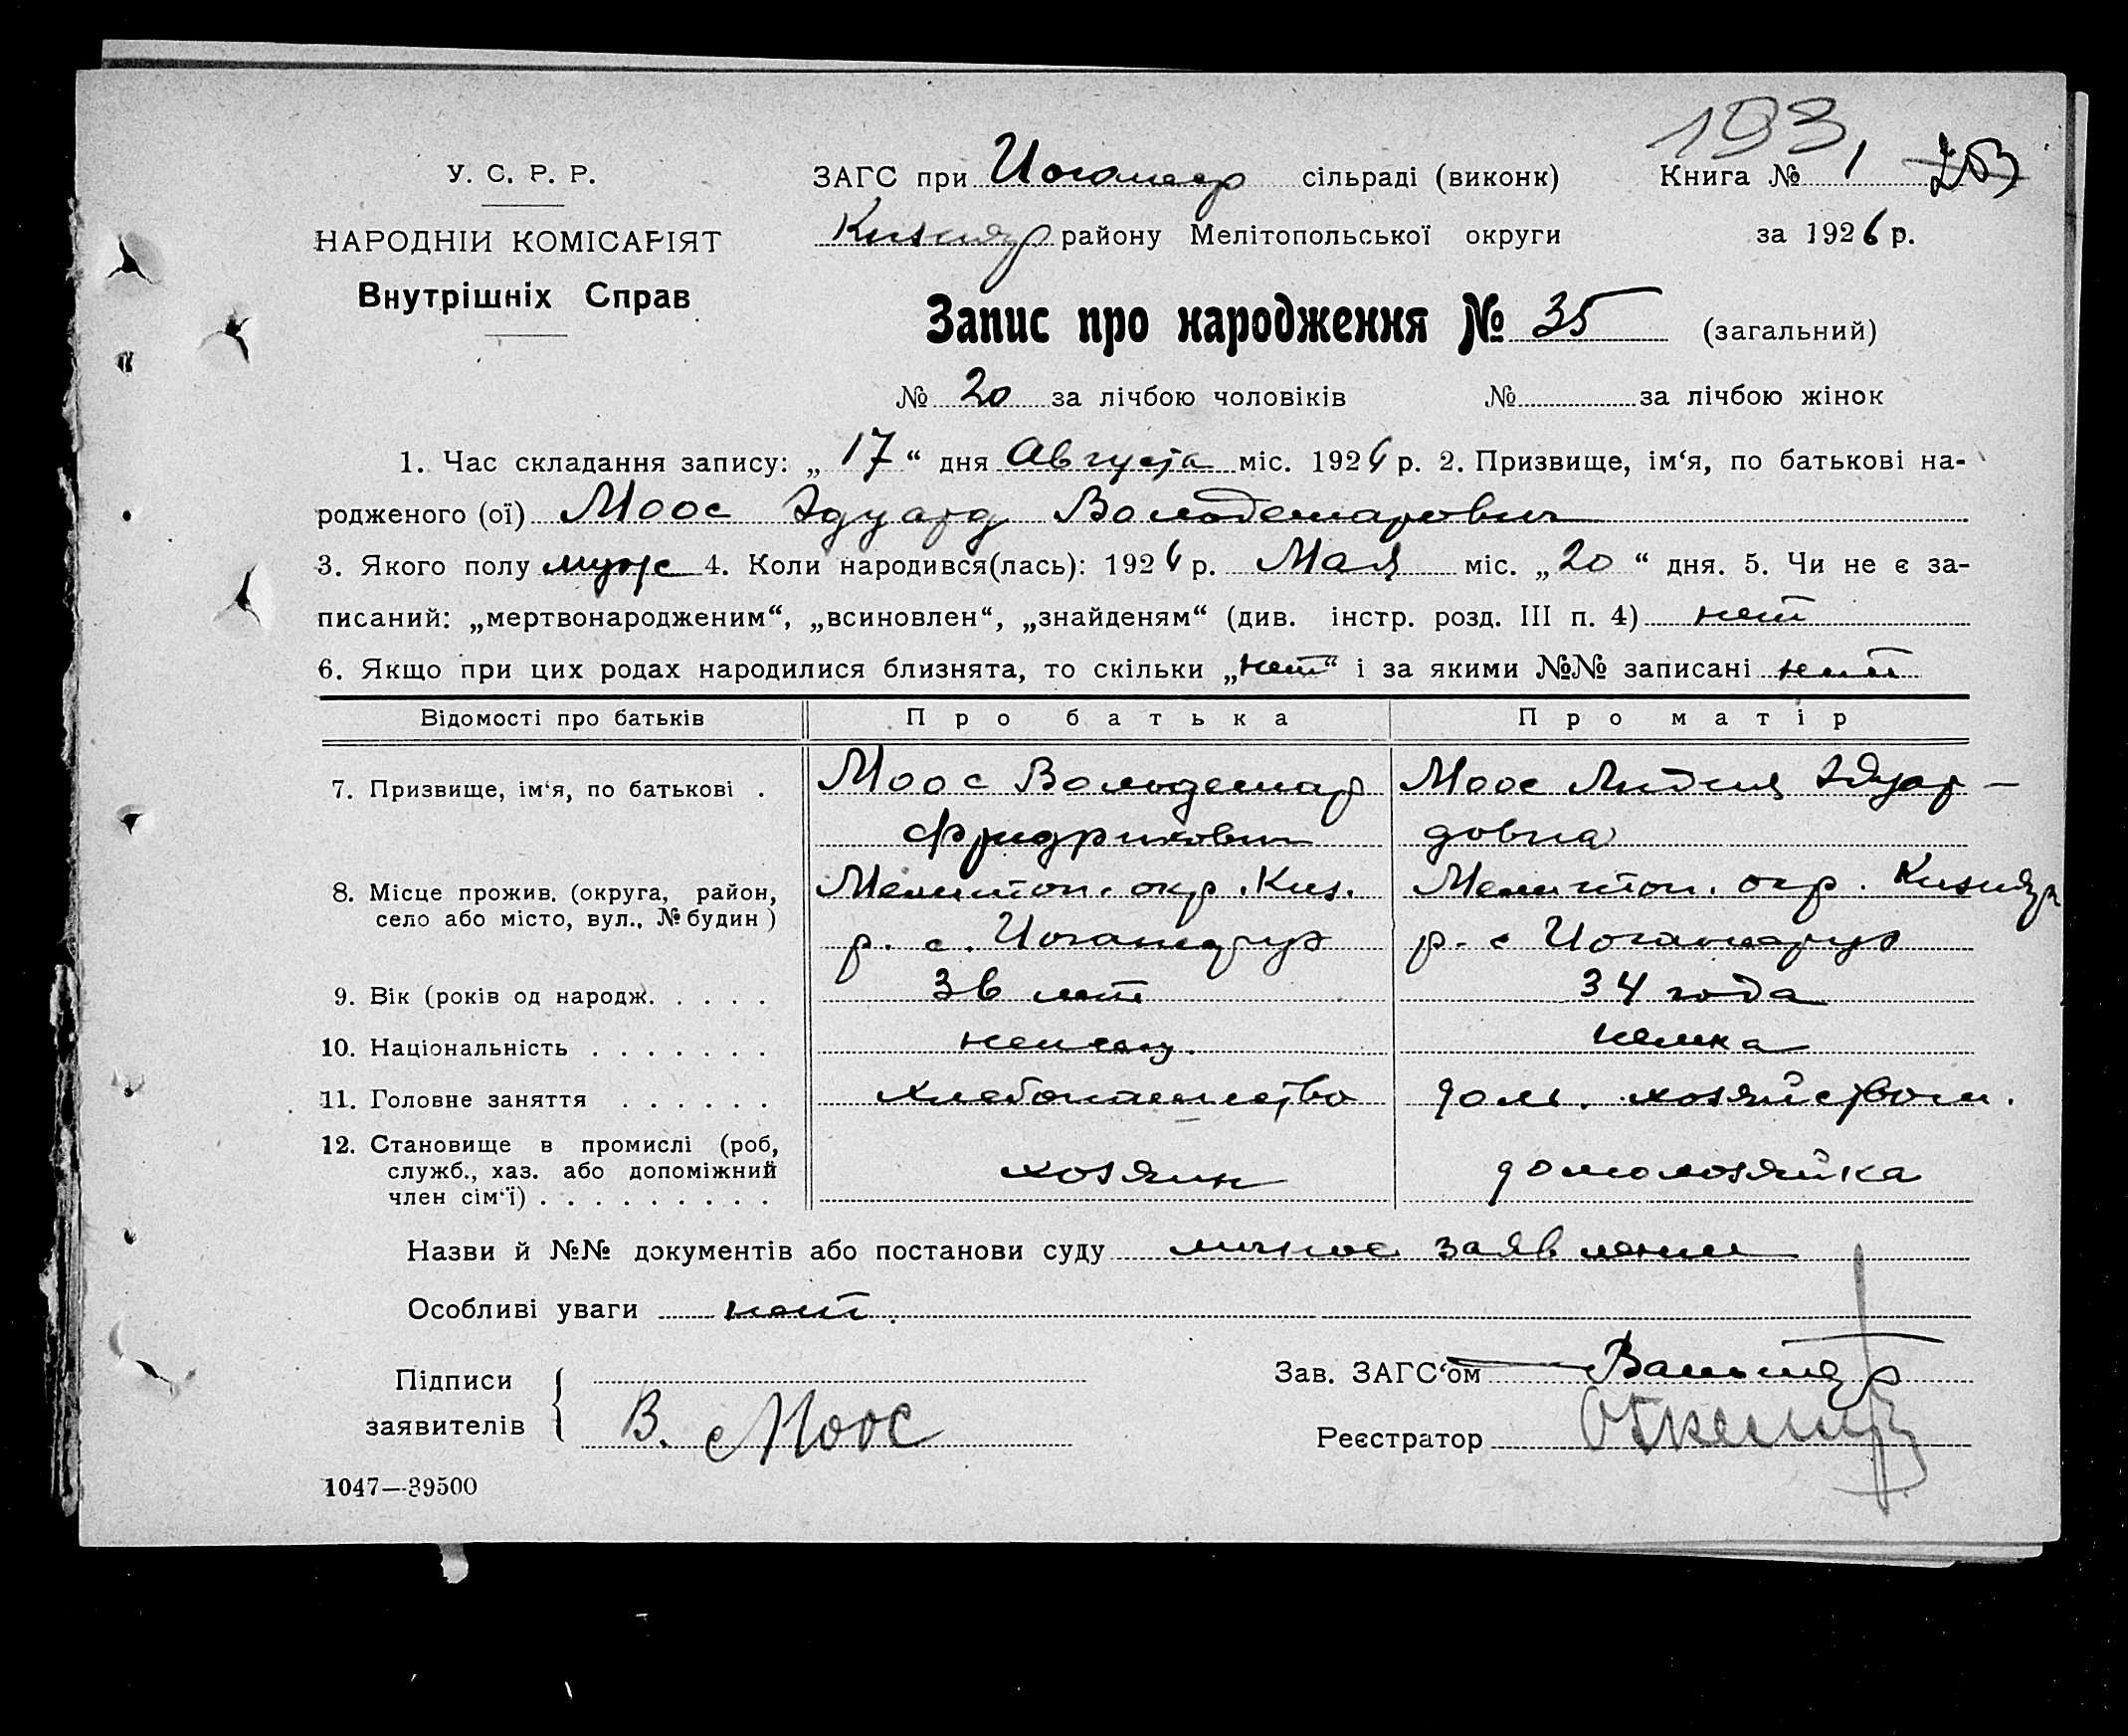 193
У. С. Р. Р.
ЗАГС при Иоганнер сільраді (виконк) Книга № 1
НАРОДНІЙ КОМІСАРІЯТ
Кизияр району Мелітопольської округи за 1926 р.
Внутрішніх Справ
Запис про народження № 35 (загальний)
№ 20 за лічбою чоловіків № за лічбою жінок
1. Час складання запису: „ 17 “ дня Августа міс. 1926 р. 2. Призвище, ім‘я, по батькові на-
родженого (ої) Моос Эдуард Володемарович
3. Якого полу муж 4. Коли народився(лась): 1926 р. Мая міс. „ 20 “ дня. 5. Чи не є за-
писаний: „мертвонародженим“, „всиновлен“, „знайденям“ (див. інстр. розд. III п. 4) нет
6. Якщо при цих родах народилися близнята, то скільки „нет“ і за якими №№ записані нет
Відомості про батьків Про батька Про матір
7. Призвище, ім‘я, по батькові . Моос Вольдемар Моос Лидия Эдуар-
Фридрихович довна
8. Місце прожив. (округа, район, село або місто, вул., № будин) Мелитоп. окр. Киз. Мелитоп. окр. Кизияр
р. с. Иоганнерух р. с Иоганнерух
9. Вік (років од народж. . . . . 36 лет 34 года
10. Національність . . . . . . . немец. немка
11. Головне заняття . . . . . . хлебопашество дом. хозяйством.
12. Становище в промислі (роб, служб., хаз. або допоміжний член сім‘ї) . . . . . . . . . хозяин домохозяйка
Назви й №№ документів або постанови суду личное заявление
Особливі уваги нет.
Підписи
заявителів В. Моос
Зав. ЗАГС‘ом
Реєстратор
1047—39500